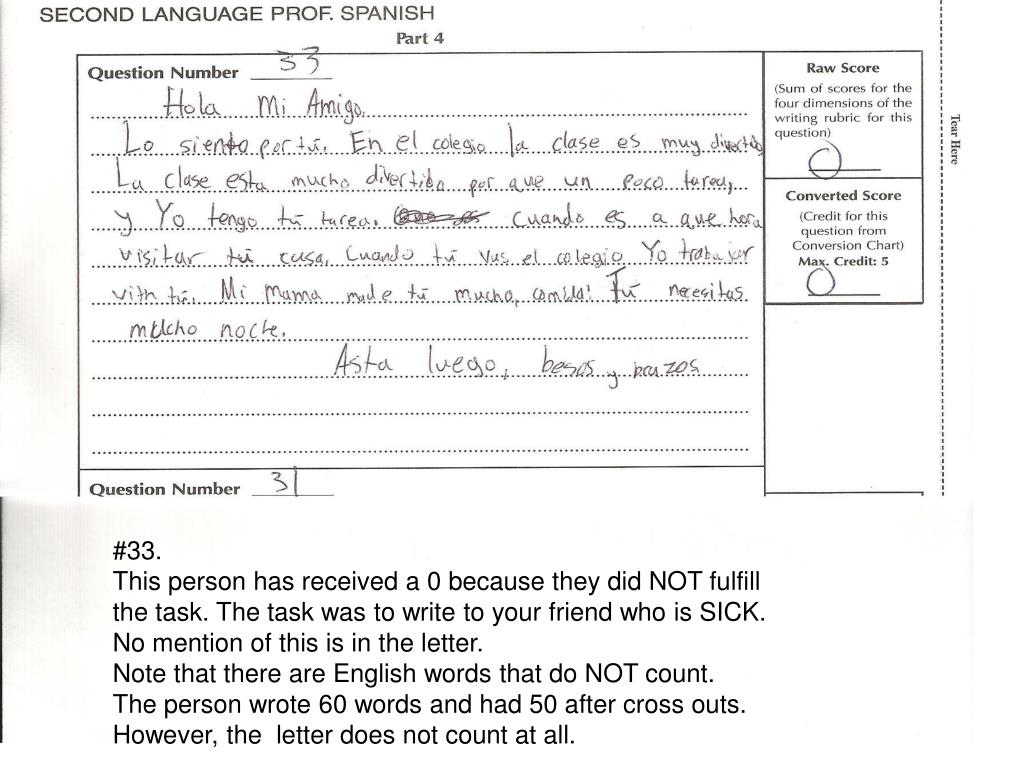 SECOND LANGUAGE PROF. SPANISH
Part 4
Question Number 33
Hola Mi Amigo,
Lo siento por tú. En el colegio la clase es muy divertido
La clase esta mucho divertido por que un poco tarea,
y Yo tengo tú tarea. cuando es a que hora
visitar tú casa, Cuando tú vas el colegio Yo trabajar
with tú. Mi Mama made tú mucho, comida! Tú necesitas
mucho noche.
Asta luego, besos y brazos
Raw Score
(Sum of scores for the
four dimensions of the
writing rubric for this
question)
0
Converted Score
(Credit for this
question from
Conversion Chart)
Max. Credit: 5
0
Tear Here
Question Number 31
#33.
This person has received a 0 because they did NOT fulfill
the task. The task was to write to your friend who is SICK.
No mention of this is in the letter.
Note that there are English words that do NOT count.
The person wrote 60 words and had 50 after cross outs.
However, the letter does not count at all.